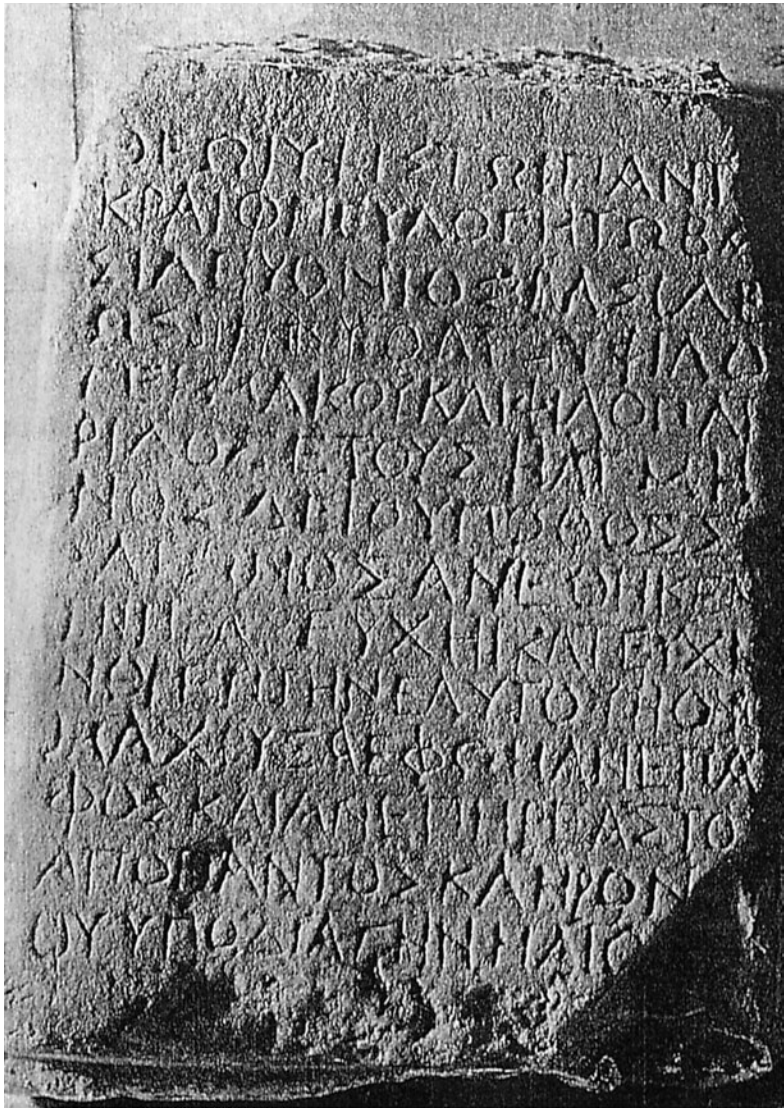 ΘΕΩΙΥΨΙΣΤΩΙΠΑΝΤ
ΚΡΑΤΟΡΙΕΥΛΟΓΗΤΩΒΑ
ΣΙΛΕΥΟΝΤΟΣΒΑΣΙΛΕ
ΩΣ ΦΙΛΟ
ΚΟΥΚΑΙΦΙΛΟΠΑΤ
ΡΙΔΟΣ ΕΤΟΥΣ ΗΛΤ ΜΗ
ΝΟΣ ΔΕΙΟΥΠΟΘΟΣΣ
ΤΡΑΤΩΝΟΣΑΝΕΘΗΚΕΝ
ΕΥΧΗΙΚΑΤΕΥΧΗ
ΝΘΡΕΠΤΗΝΕΑΥΤΟΥΗΟΝ
ΜΑΧΡΥΣΑΕΦΩΗΑΝΕΠΑ
ΦΟΣΚΑΙΑΝΕΠΗΡΕΑΣΤΟ
ΑΠΟΠΑΝΤΟΣΚΛΗΡΟΝ
ΟΥΥΠΟΔΙΑΓΗΝΗΛΙΟ